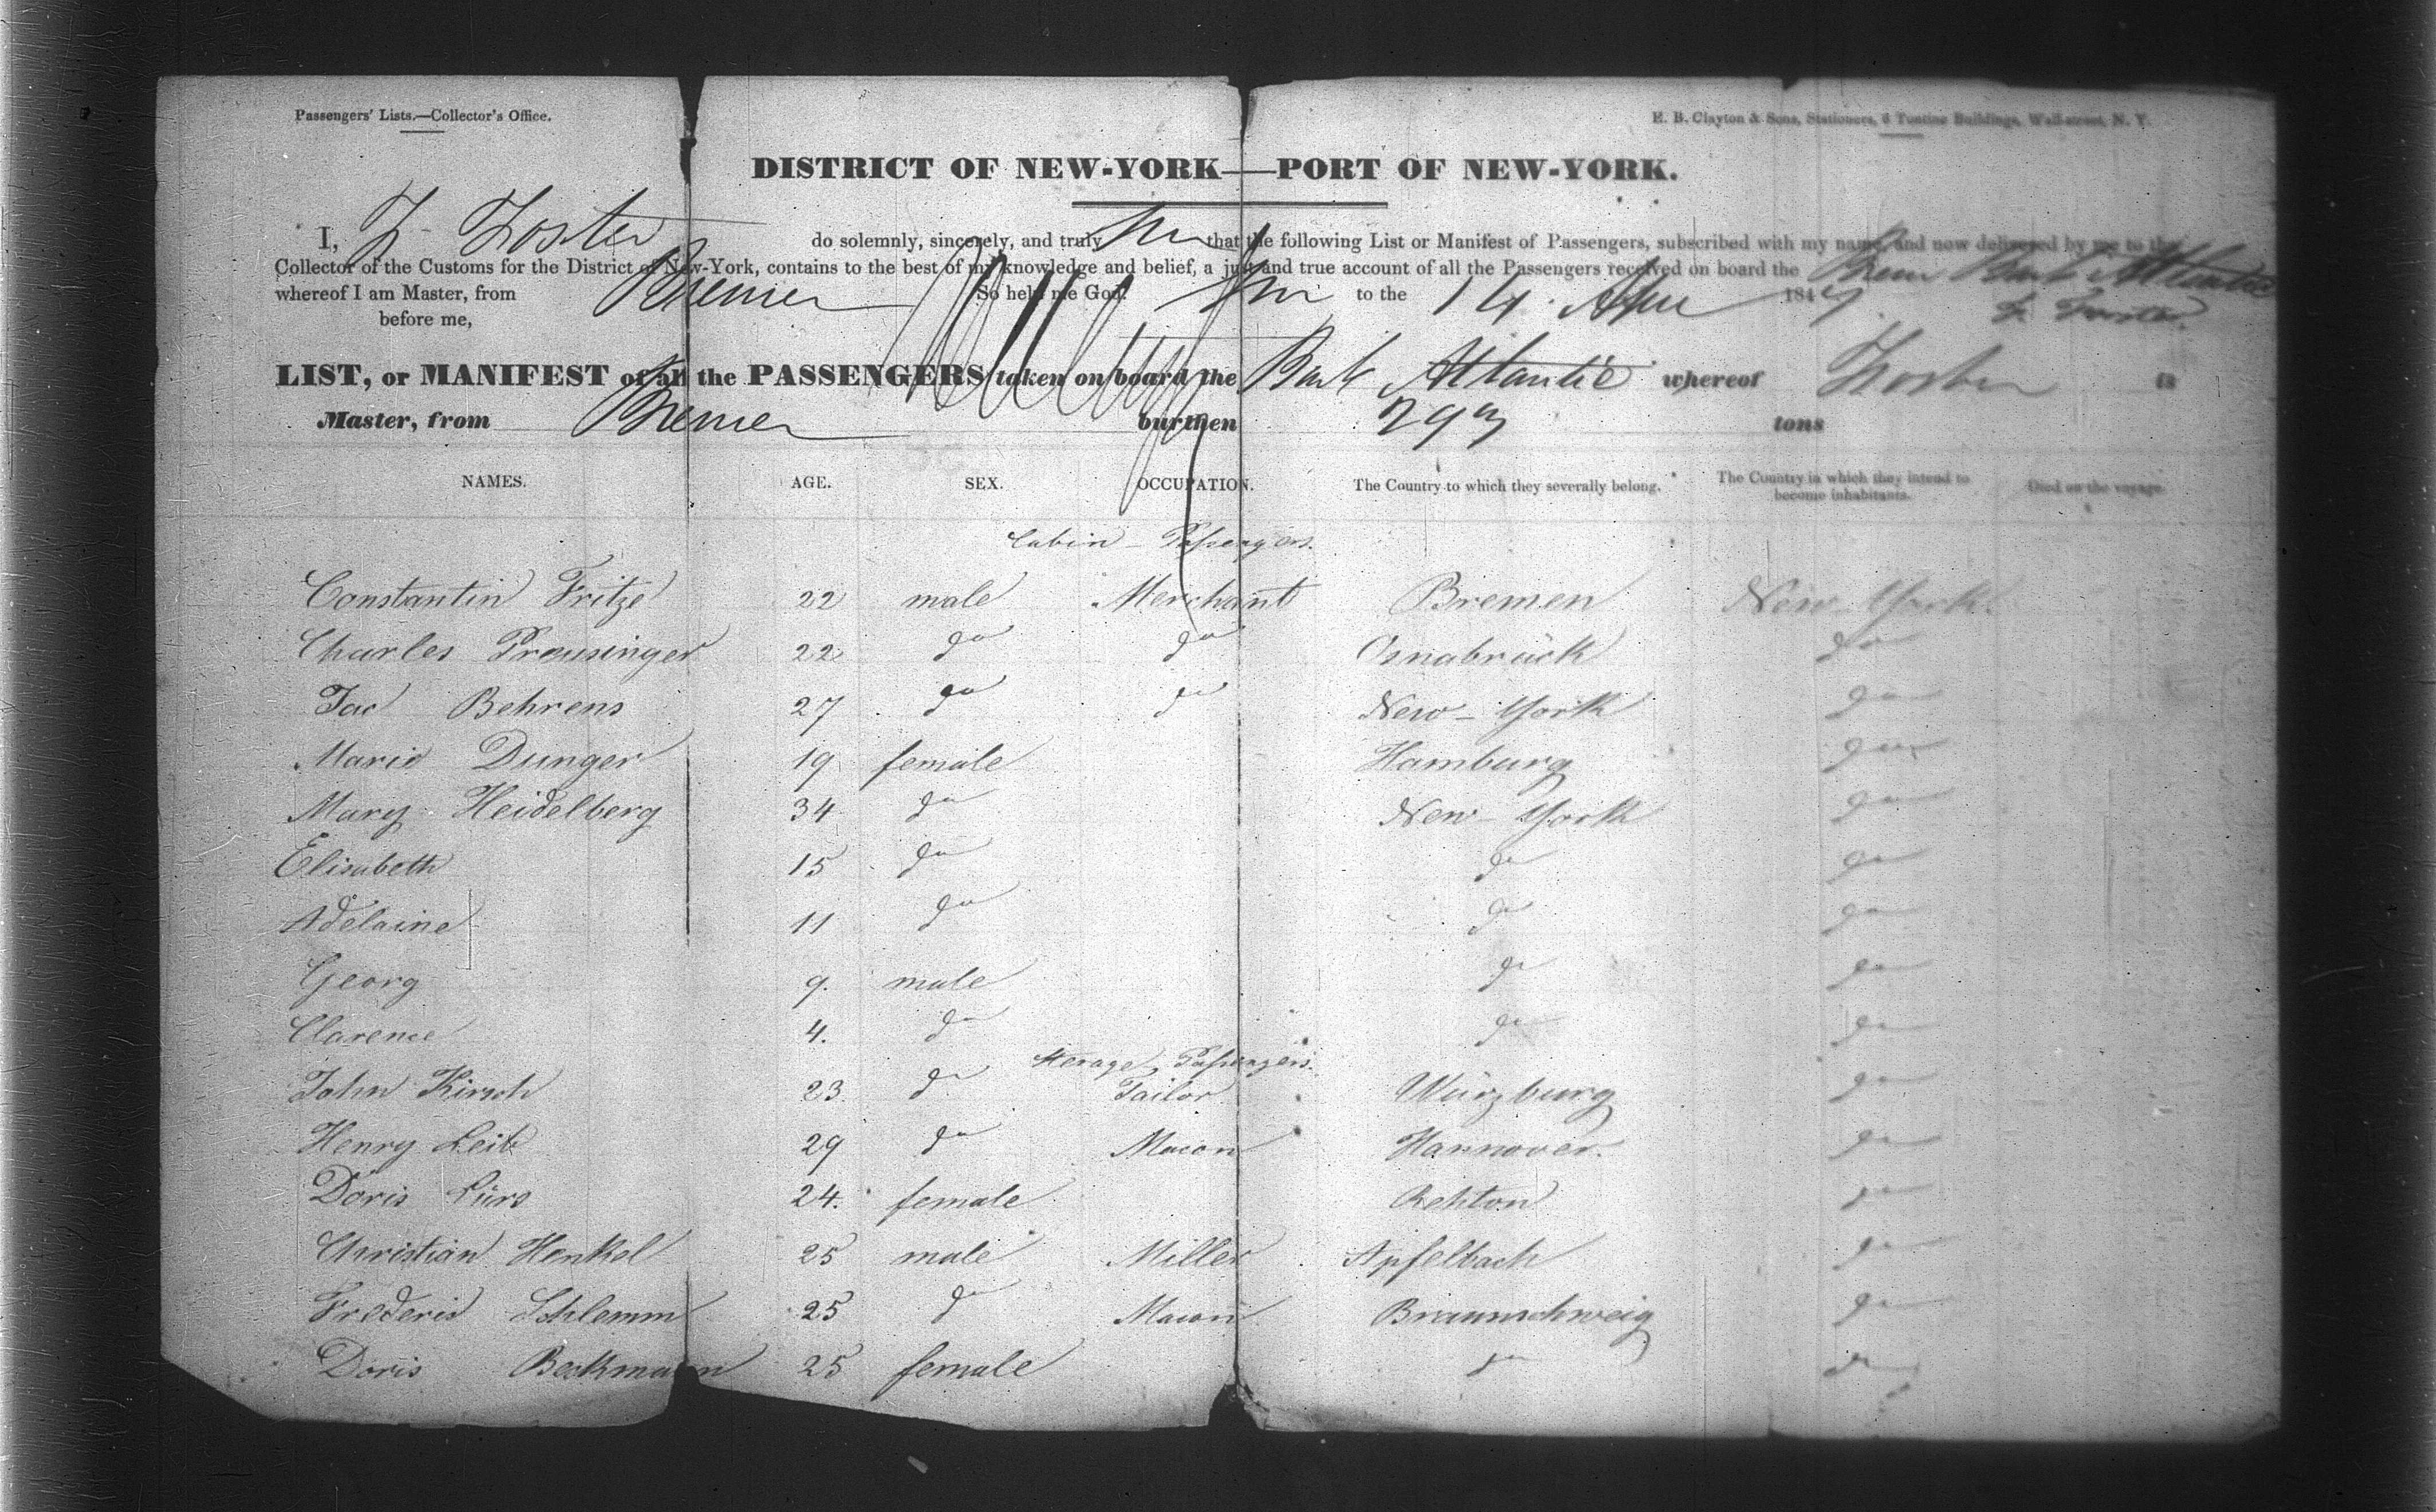 Passengers' Lists.—Collector's Office.
E. B. Clayton & Sons, Stationers, 6 Tontine Buildings, Wall-street, N. Y.
DISTRICT OF NEW-YORK—PORT OF NEW-YORK.
I, do solemnly, sincerely, and truly that the following List or Manifest of Passengers, subscribed with my name, and now delivered by me to the
Collector of the Customs for the District of New-York, contains to the best of my knowledge and belief, a just and true account of all the Passengers received on board the Brem Bark Atlantic
whereof I am Master, from Bremen So help me God. to the 14 184
before me,
LIST, or MANIFEST of all the PASSENGERS taken on board the Bark Atlantic whereof is
Master, from Bremen burthen 293 tons
NAMES. AGE. SEX. OCCUPATION. The Country to which they severally belong. The Country in which they intend to become inhabitants. Died on the voyage.
Cabin - Passengers.
Constantin Fritze 22 male Merchant Bremen New York.
Charles Preusinger 22 do do Osnabrück do
Jac Behrens 27 do do New-York do
Marie Dunger 19 female Hamburg do
Mary Heidelberg 34 do New-York do
Elisabeth 15 do do do
Adelaine 11 do do do
Georg 9. male do do
Clarence 4. do do do
Sterage Passengers.
John Kirsch 23. do Tailor Würzburg do
Henry 29 do Mason Hannover. do
Doris Lürs 24. female do
Christian Henkel 25 male Miller Apfelbach do
Frederic Schlemm 25 do Mason Braunschweig do
Doris Beckmann 25 female do do